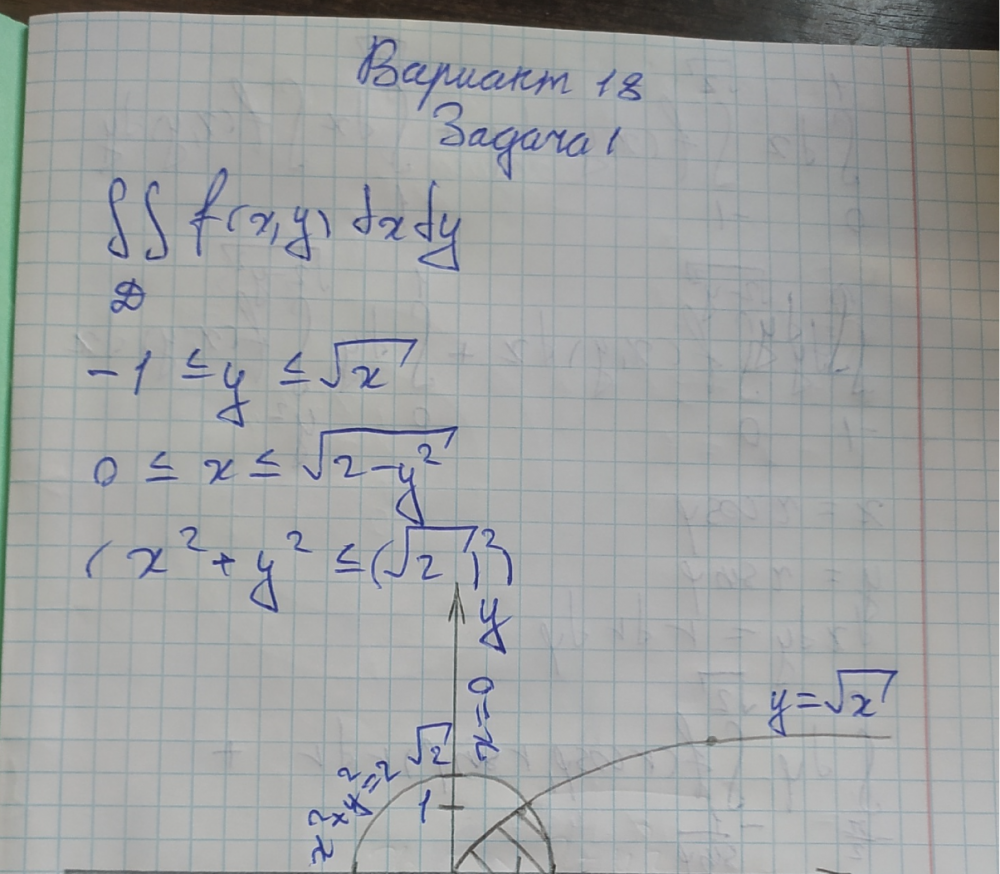 Вариант 18
Задача 1
∬ f(x,y) dxdy
D
-1 ≤ y ≤ √x
0 ≤ x ≤ √(2-y²)
(x² + y² ≤ (√2)²)
y
x=0
y=√x
√2
x²+y²=2
1